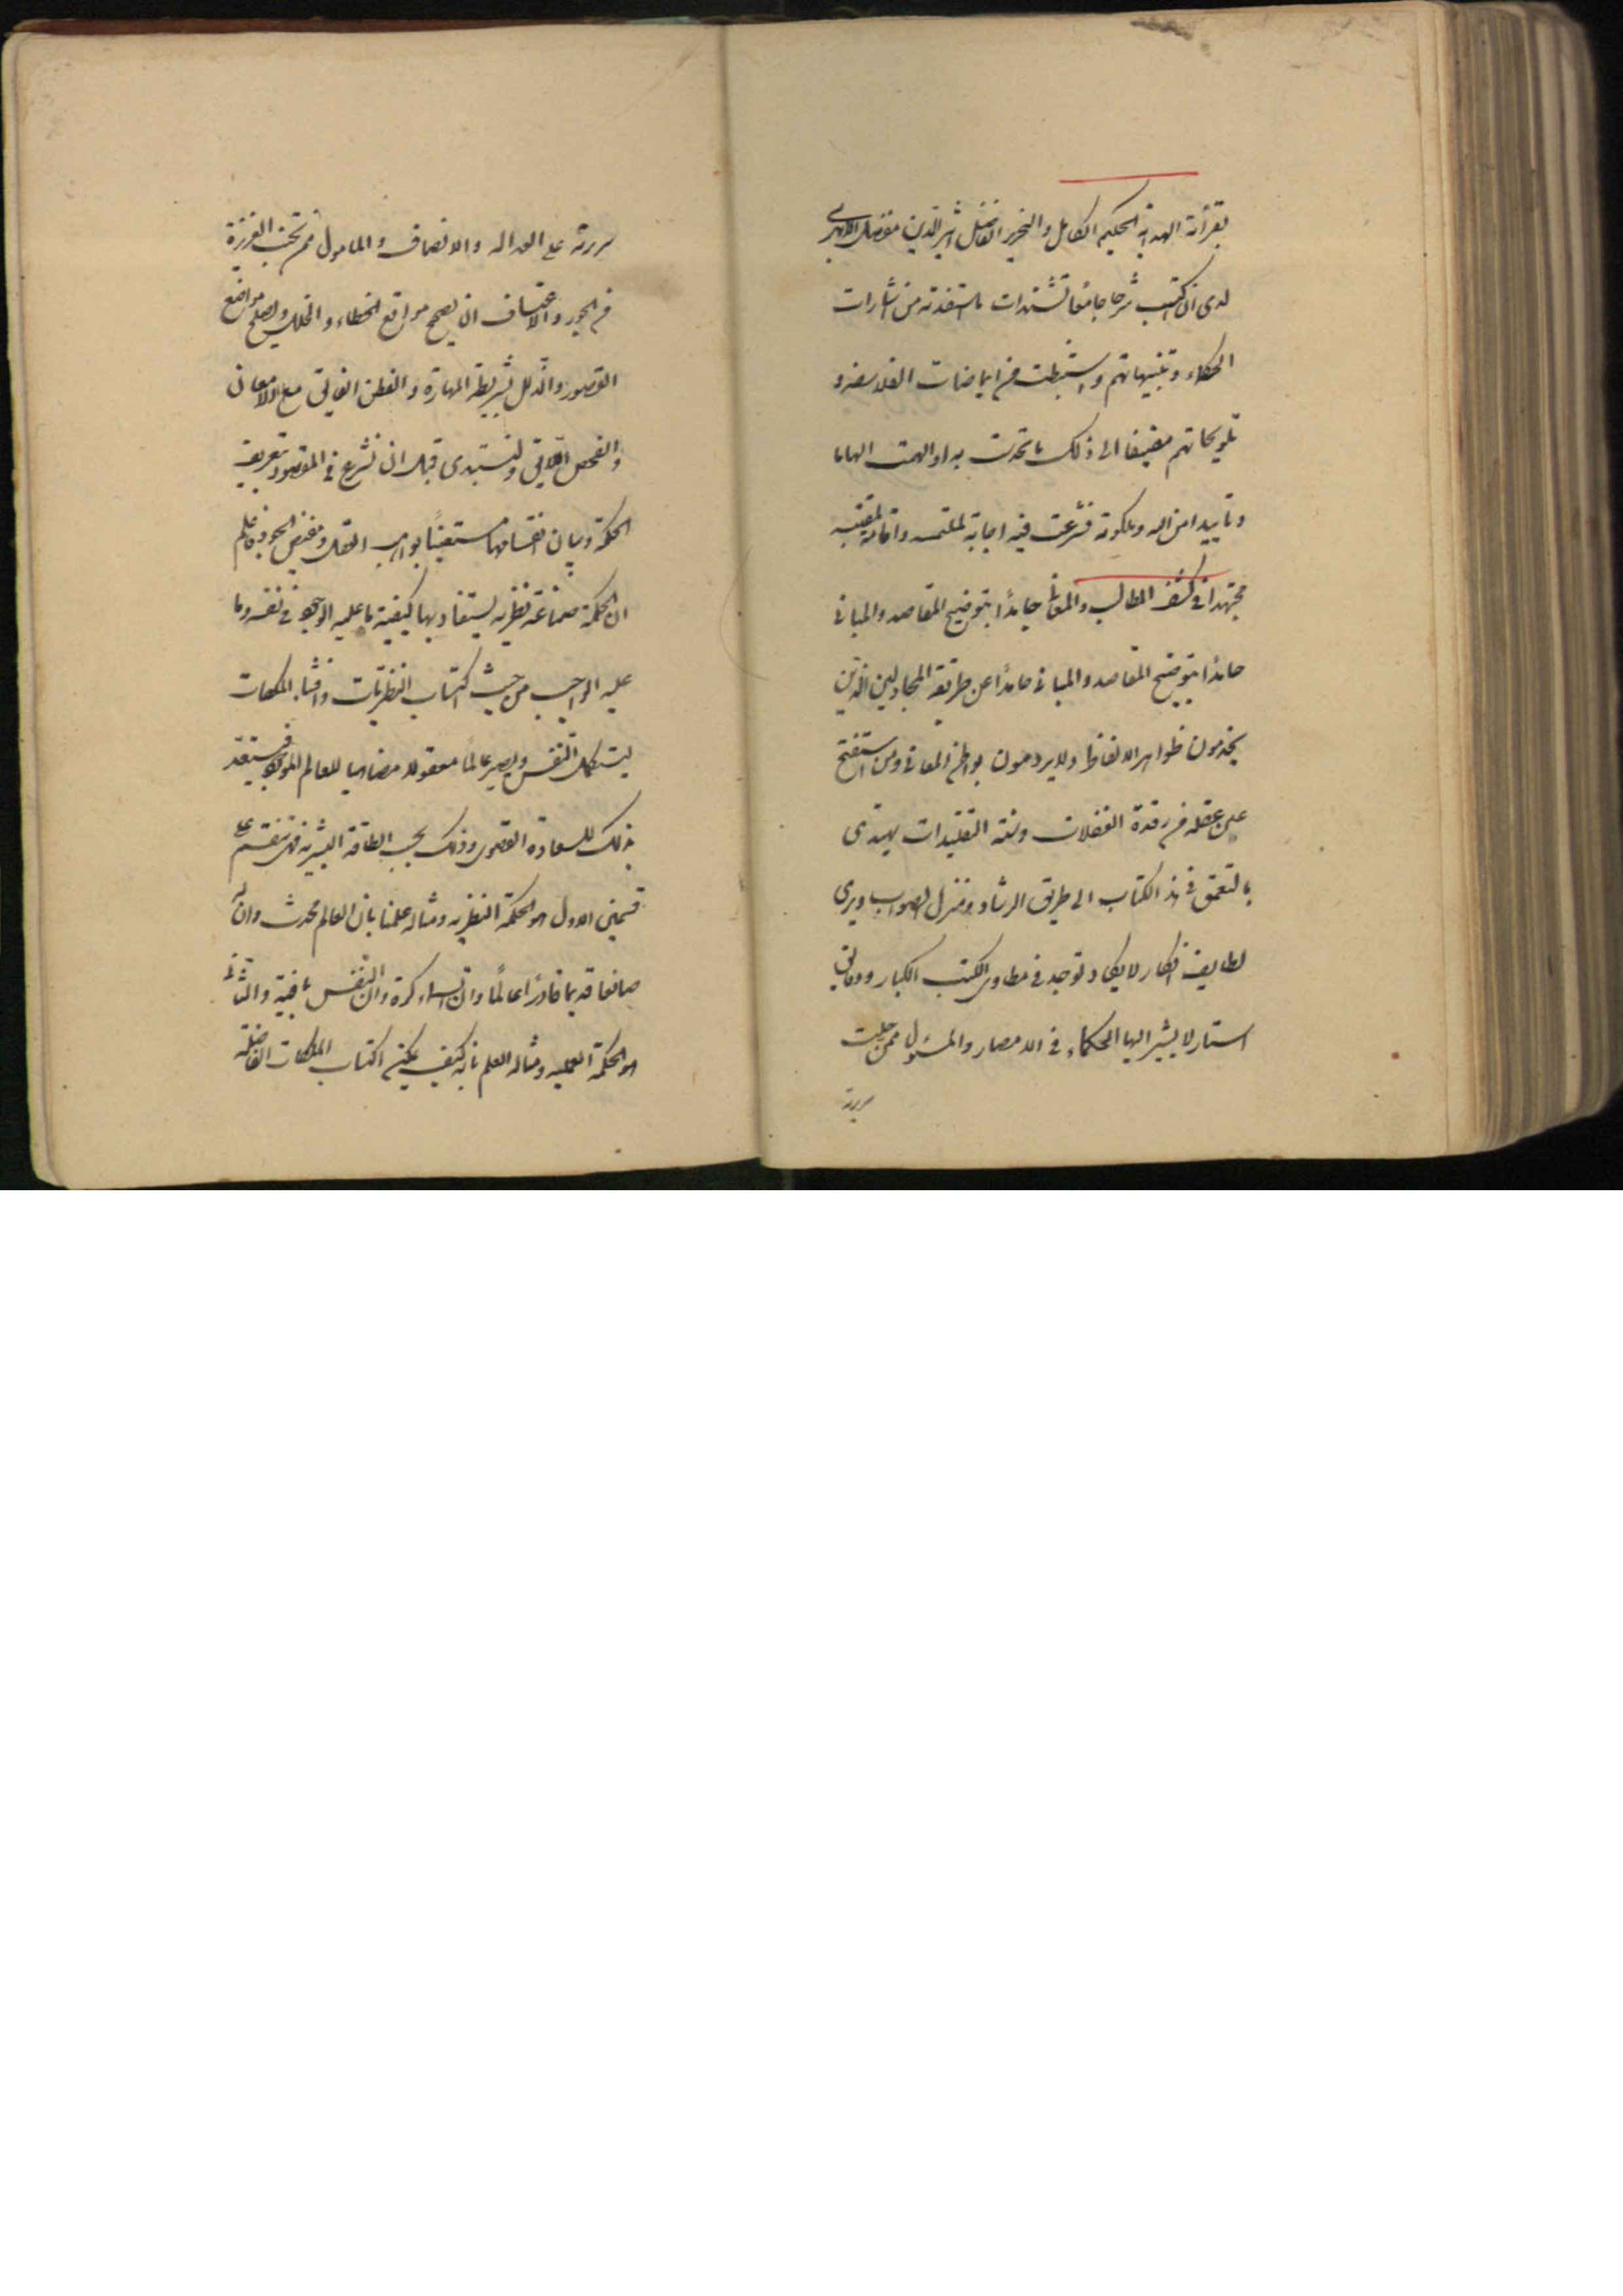 بقرأة الهداية للحكيم الكامل والنحرير الفاضل اثير الدين مفضل الابهري
لدى ان اكتب شرحا جامعا لشتدرات ما استفدته من اشارات
الحكماء وتنبيهاتهم واستنبطت من ايماضات الفلاسفة و
تلويحاتهم مضيفا الى ذلك ما تحدست به او الهمت الهاما
وتاييدا من الله وملكوته فشرعت فيه اجابة لملتمسه واقامة
مجتهدا في كشف المطالب والمعانى جايدا بتوضيح المقاصد والمبانى
حامدا بتوضيح المقاصد والمبانى حامدا عن طريقة المجادلين الذين
يخدمون ظواهر الالفاظ ولا يرومون بواطن المعانى ومن استفتح
عين عقله من رقدة الغفلات وسنة التقليدات يهتدى
بالتعمق في هذا الكتاب الى طريق الرشاد ومنزل الصواب ويرى
لطايف افكار لا يكاد توجد في مطاوى الكتب الكبار ودقايق
استار لا يشير اليها الحكماء في الامصار والمسئول ممن جبلت
سريرته
سريرته على العدالة والانصاف والمامول ممن تجنب الغريزة
من الجور والاعتساف ان يصحح مواقع الخطاء والخلل ويصلح مواضع
القصور والذلل بشريطة المهارة والفطن الفايق مع الامعان
والفحص اللايق ولنبتدى قبل ان نشرع في المقصود بتعريف
الحكمة وبيان انقسامها مستعينا بواهب العقل ومفيض الجود فاعلم
ان الحكمة صناعة نظرية يستفاد بها كيفية ما عليه الوجود في نفسه وما
عليه الواجب من حيث اكتساب النظريات واقتناء الملكات
ليستكمل النفس ويصير عالما معقولا مضاهيا للعالم الموجود فيستعد
بذلك للسعادة القصوى وذلك بحسب الطاقة البشرية فهى تنقسم على
قسمين الاول هو الحكمة النظرية ومثاله علمنا بان العالم محدث وان له
صانعا قديما قادرا عالما وان السماء كرة وان النفس باقية والثانى
هو الحكمة العملية ومثاله العلم بانه كيف يمكن اكتساب الملكات الفاضلة